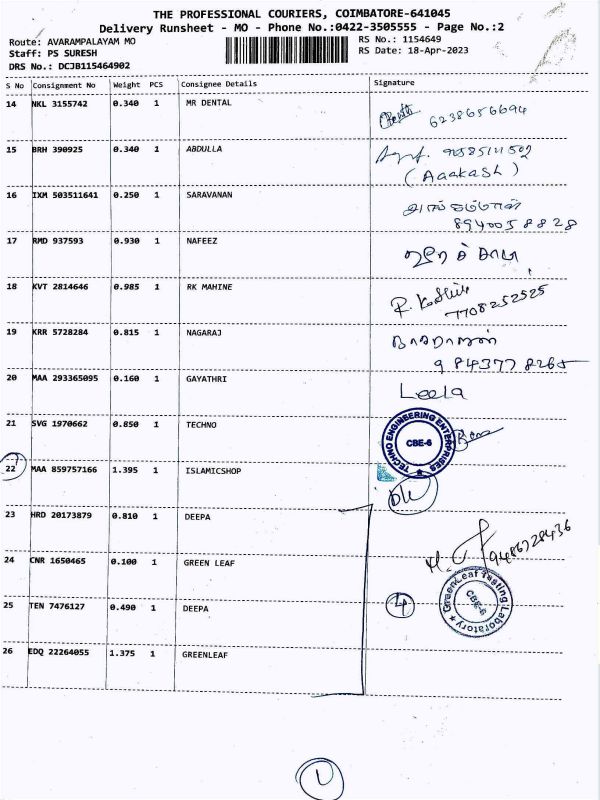 THE PROFESSIONAL COURIERS, COIMBATORE-641045
Delivery Runsheet - MO - Phone No.:0422-3505555 - Page No.:2
Route: AVARAMPALAYAM MO
RS No.: 1154649
Staff: PS SURESH
RS Date: 18-Apr-2023
DRS No.: DCJB115464902
S No Consignment No Weight PCS Consignee Details Signature
14 NKL 3155742 0.340 1 MR DENTAL
6238656694
15 BRH 390925 0.340 1 ABDULLA
(Aaakash)
16 IXM 503511641 0.250 1 SARAVANAN
8940058828
17 RMD 937593 0.930 1 NAFEEZ
18 KVT 2814646 0.985 1 RK MAHINE
7708252525
19 KRR 5728284 0.815 1 NAGARAJ
நாகராஜன்
9843778265
20 MAA 293365095 0.160 1 GAYATHRI
Leela
21 SVG 1970662 0.850 1 TECHNO
TECHNO ENGINEERING ENTERPRISES
CBE-6
22 MAA 859757166 1.395 1 ISLAMICSHOP
23 HRD 20173879 0.810 1 DEEPA
9486728436
24 CNR 1650465 0.100 1 GREEN LEAF
25 TEN 7476127 0.490 1 DEEPA
GreenLeaf Testing Laboratory
CBE-6
26 EDQ 22264055 1.375 1 GREENLEAF